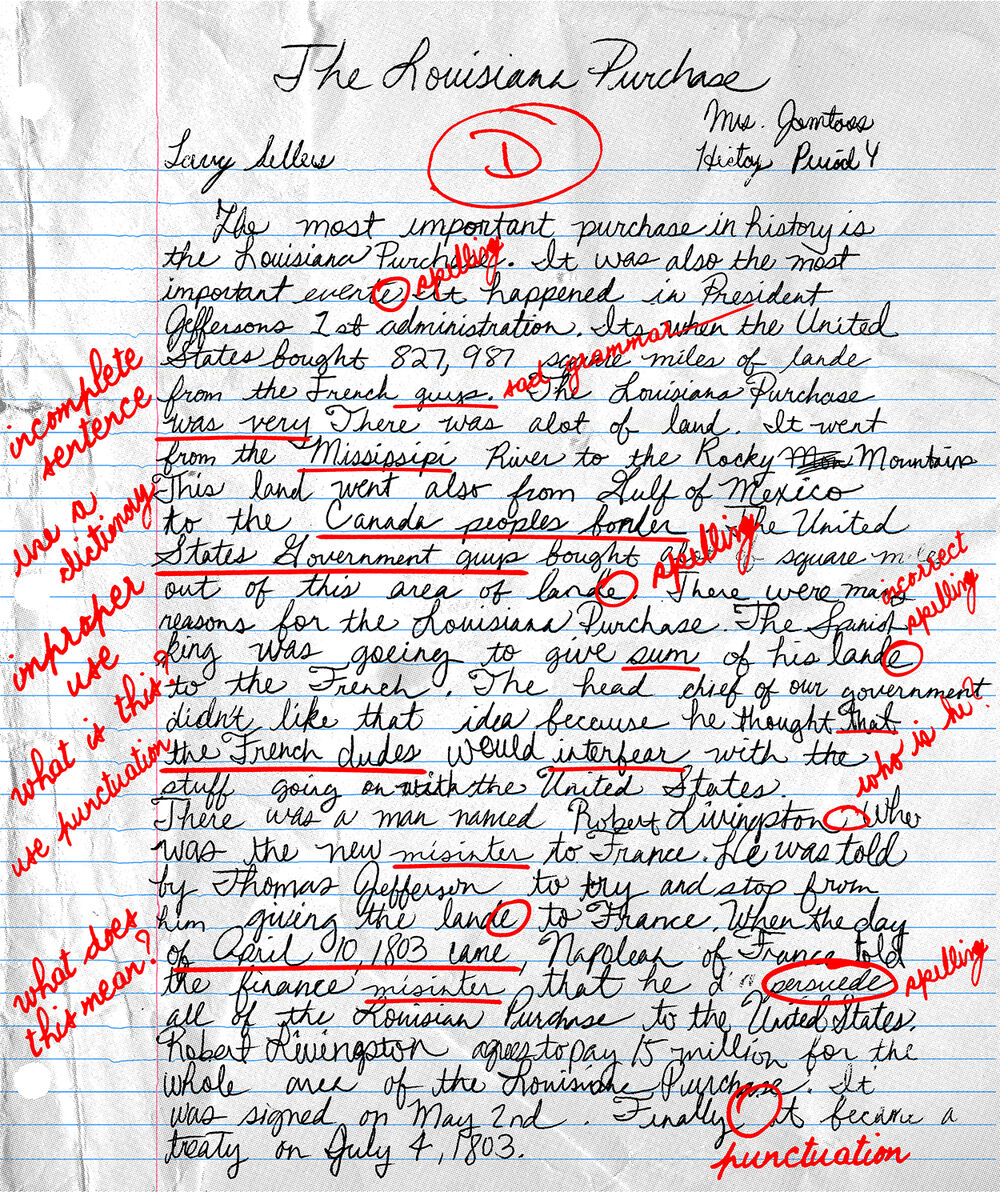 The Louisiana Purchase
Mrs. Jamtoss
Larry Sellers
D
History Period 4
The most important purchase in history is
the Louisiana Purchase. It was also the most
spelling
important evente. It happened in President
Jeffersons 1st administration. Its when the United
States bought 827,987 square miles of lande
sad grammar
from the French guys. The Louisiana Purchase
incomplete
sentence
was very There was alot of land. It went
from the Mississipi River to the Rocky Mountains
This land went also from Gulf of Mexico
use a
dictionary
to the Canada peoples border The United
States Government guys bought square
spelling
out of this area of lande. There were many
incorrect
spelling
improper
use
reasons for the Louisiana Purchase. The Spanish
king was goeing to give sum of his lande
to the French. The head chief of our government
what is this?
didn't like that idea because he thought that
who is he?
the French dudes would interfear with the
use punctuation
stuff going on with the United States.
There was a man named Robert Livingston. Who
was the new misinter to France. He was told
by Thomas Jefferson to try and stop from
him giving the lande to France. When the day
what does
this mean?
of April 10, 1803 came, Napolean of France told
the finance misinter that he persuede
spelling
all of the Louisian Purchase to the United States.
Robert Livingston agrees to pay 15 million for the
whole area of the Louisiane Purchase. It
was signed on May 2nd. Finally it became a
treaty on July 4, 1803.
punctuation